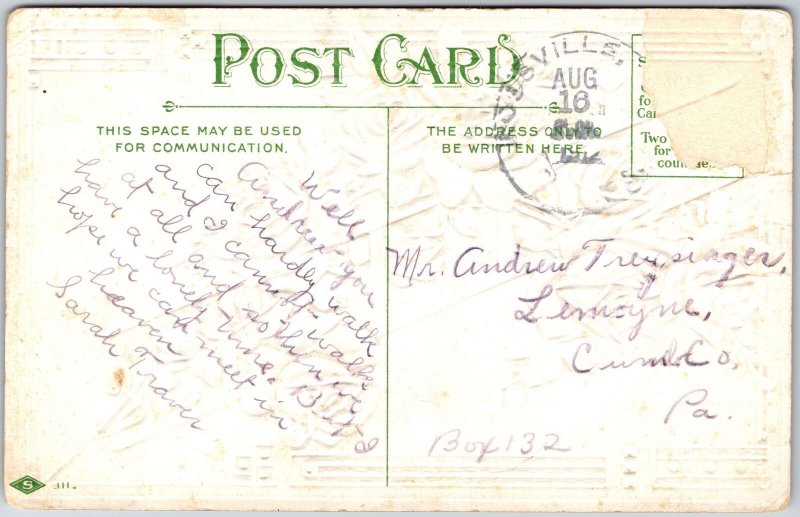 POST CARD
THIS SPACE MAY BE USED
FOR COMMUNICATION.
THE ADDRESS ONLY TO
BE WRITTEN HERE
AUG
16
Two
for
Well
Andrew you
can hardly walk
and I cannot walk
at all and so then we
have a lonely time. But I
hope we can meet in
heaven
Sarah Traver
Mr. Andrew Treysinger,
Lemoyne,
Cumb Co,
Pa.
Box 132
S
111